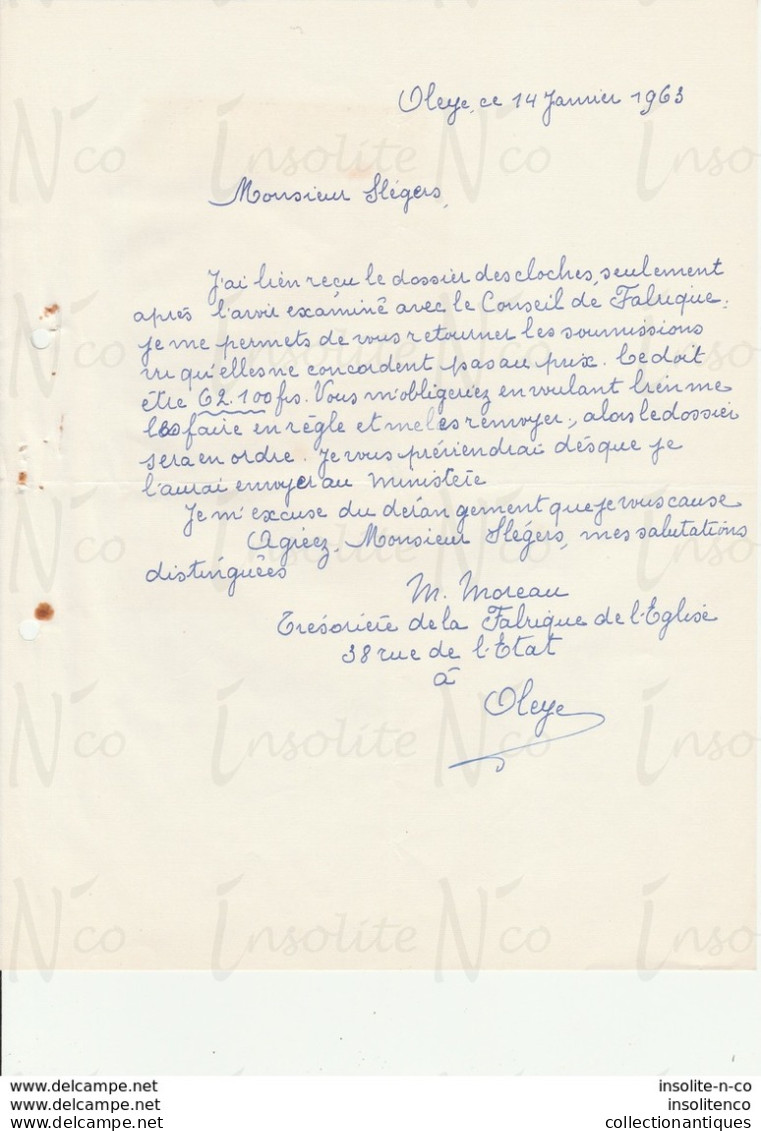 Oleye, ce 14 Janvier 1963
Monsieur Slégers,
J'ai bien reçu le dossier des cloches, seulement
après l'avoir examiné avec le Conseil de Fabrique,
je me permets de vous retourner les soumissions
vu qu'elles ne concordent pas au prix. Ce doit
être 62.100 frs. Vous m'obligeriez en voulant bien me
les faire en règle et me les renvoyer, alors le dossier
sera en ordre. Je vous préviendrai dès que je
l'aurai envoyer au Ministète
Je m'excuse du derangement que je vous cause
Agréez, Monsieur Slégers, mes salutations
distinguées
M. Moreau
Tresoriète de la Fabrique de l'Eglise
38 rue de l'Etat
à
Oleye
Insolite N'co
www.delcampe.net
www.delcampe.net
www.delcampe.net
insolite-n-co
insolitenco
collectionantiques